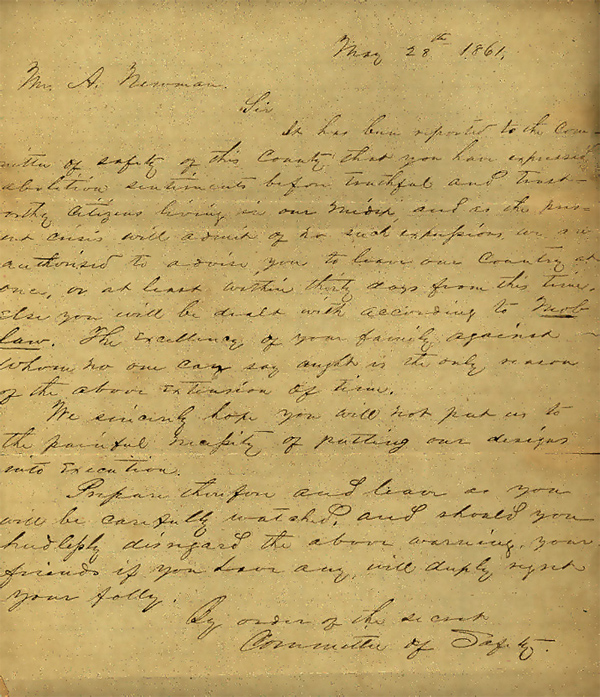 May 28th 1861.
Mr. A. Newman.
Sir
It has been reported to the Com-
mittee of safety of this County that you have expressed
abolition sentiments before truthful and trust-
worthy citizens living in our midst, and as the pres-
ent crisis will admit of no such expressions we are
authorised to advise you to leave our Country at
once, or at least within thirty days from this time,
else you will be dealt with according to Mob
law. The excellency of your family against
whom no one can say aught is the only reason
of the above extension of time.
We sincerely hope you will not put us to
the painful necessity of putting our designs
into execution.
Prepare therefore and leave as you
will be carefully watched, and should you
heedlessly disregard the above warning, your
friends if you have any, will deeply regret
your folly.
By order of the secret
Committee of Safety.